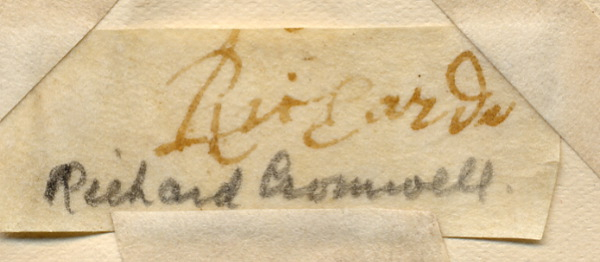 Richard
Richard Cromwell.